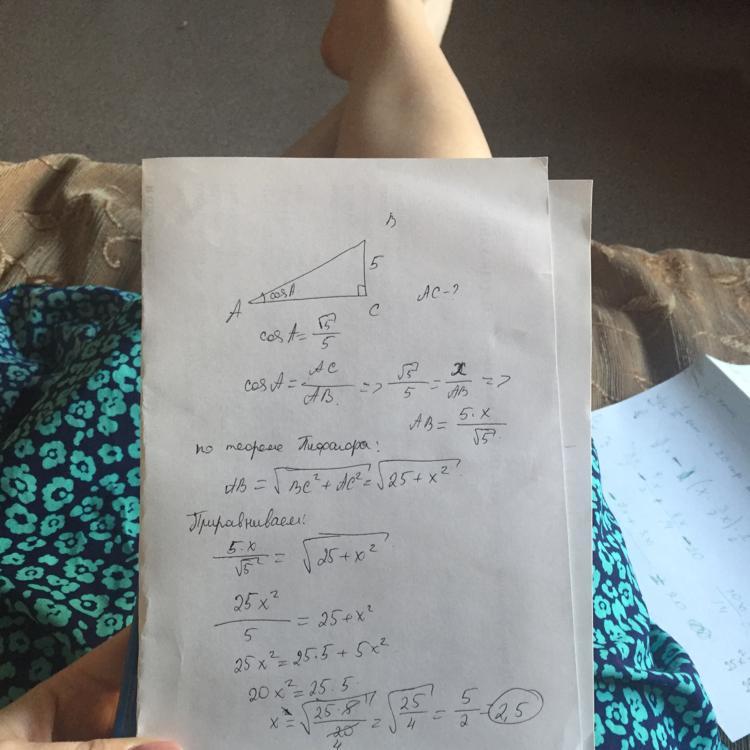 B
5
A
cosA
C
AC-?
cosA = √5/5
cosA = AC/AB => √5/5 = x/AB =>
AB = 5·x/√5
по теореме Пифагора:
AB = √(BC² + AC²) = √(25 + x²)
Приравниваем:
5·x/√5 = √(25 + x²)
25x²/5 = 25 + x²
25x² = 25·5 + 5x²
20x² = 25·5
x = √(25·5/20) = √(25/4) = 5/2 = 2,5
4